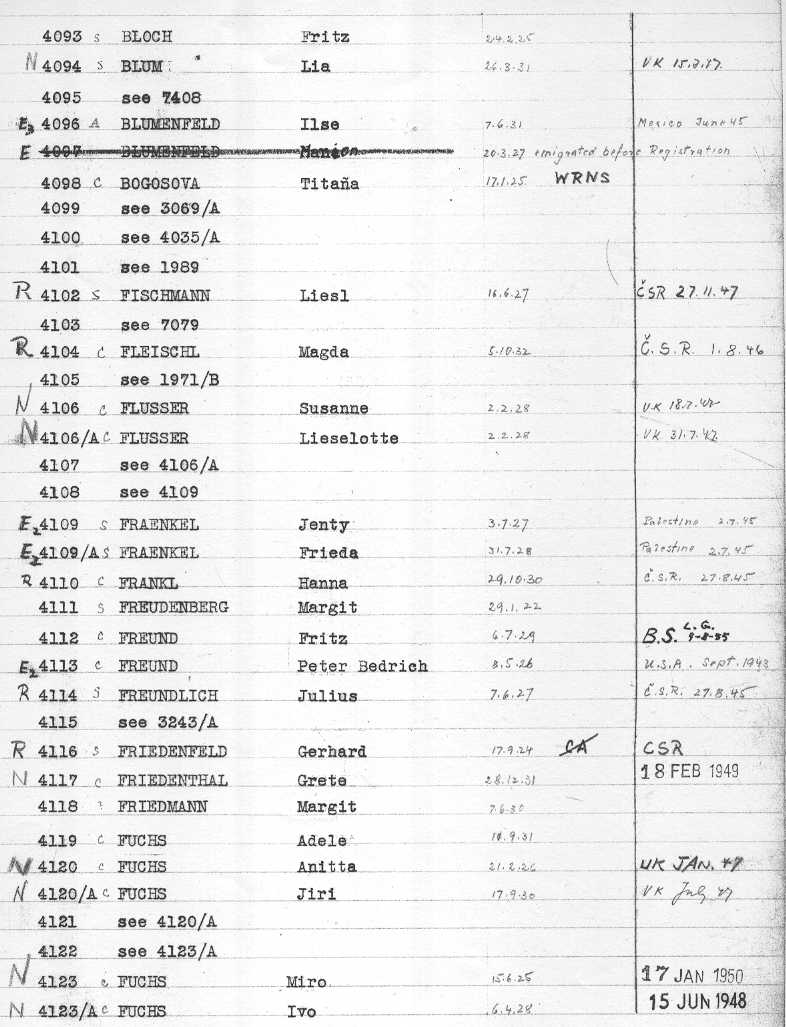 4093 s BLOCH Fritz 24.2.25
N 4094 s BLUM Lia 26.3.31 VK
4095 see 7408
E3 4096 A BLUMENFELD Ilse 7.6.31 Mexico June 45
E 4097 BLUMENFELD Marion 20.3.27 emigrated before Registration
4098 c BOGOSOVA Titaña 17.1.25 WRNS
4099 see 3069/A
4100 see 4035/A
4101 see 1989
R 4102 s FISCHMANN Liesl 16.6.27 ČSR 27.11.47
4103 see 7079
R 4104 c FLEISCHL Magda 5.10.32 Č.S.R. 1.8.46
4105 see 1971/B
N 4106 c FLUSSER Susanne 2.2.28 VK 18.7.47
N 4106/A c FLUSSER Lieselotte 2.2.28 VK 31.7.47
4107 see 4106/A
4108 see 4109
E2 4109 s FRAENKEL Jenty 3.7.27 Palestine 2.7.45
E2 4109/A s FRAENKEL Frieda 31.7.28 Palestine 2.7.45
R 4110 c FRANKL Hanna 29.10.30 Č.S.R. 27.8.45
4111 s FREUDENBERG Margit 29.1.22
4112 c FREUND Fritz 6.7.29 B.S. L.G. 9-8-55
E2 4113 c FREUND Peter Bedrich 3.5.26 U.S.A. Sept. 1943
R 4114 s FREUNDLICH Julius 7.6.27 Č.S.R. 27.8.45
4115 see 3243/A
R 4116 s FRIEDENFELD Gerhard 17.9.24 CA CSR
N 4117 c FRIEDENTHAL Grete 28.12.31 18 FEB 1949
4118 FRIEDMANN Margit 7.6.30
4119 c FUCHS Adele 10.9.31
N 4120 c FUCHS Anitta 21.2.26 UK JAN. 47
N 4120/A c FUCHS Jiri 17.9.30 VK July 47
4121 see 4120/A
4122 see 4123/A
N 4123 c FUCHS Miro 15.6.25 17 JAN 1950
N 4123/A c FUCHS Ivo 6.4.28 15 JUN 1948